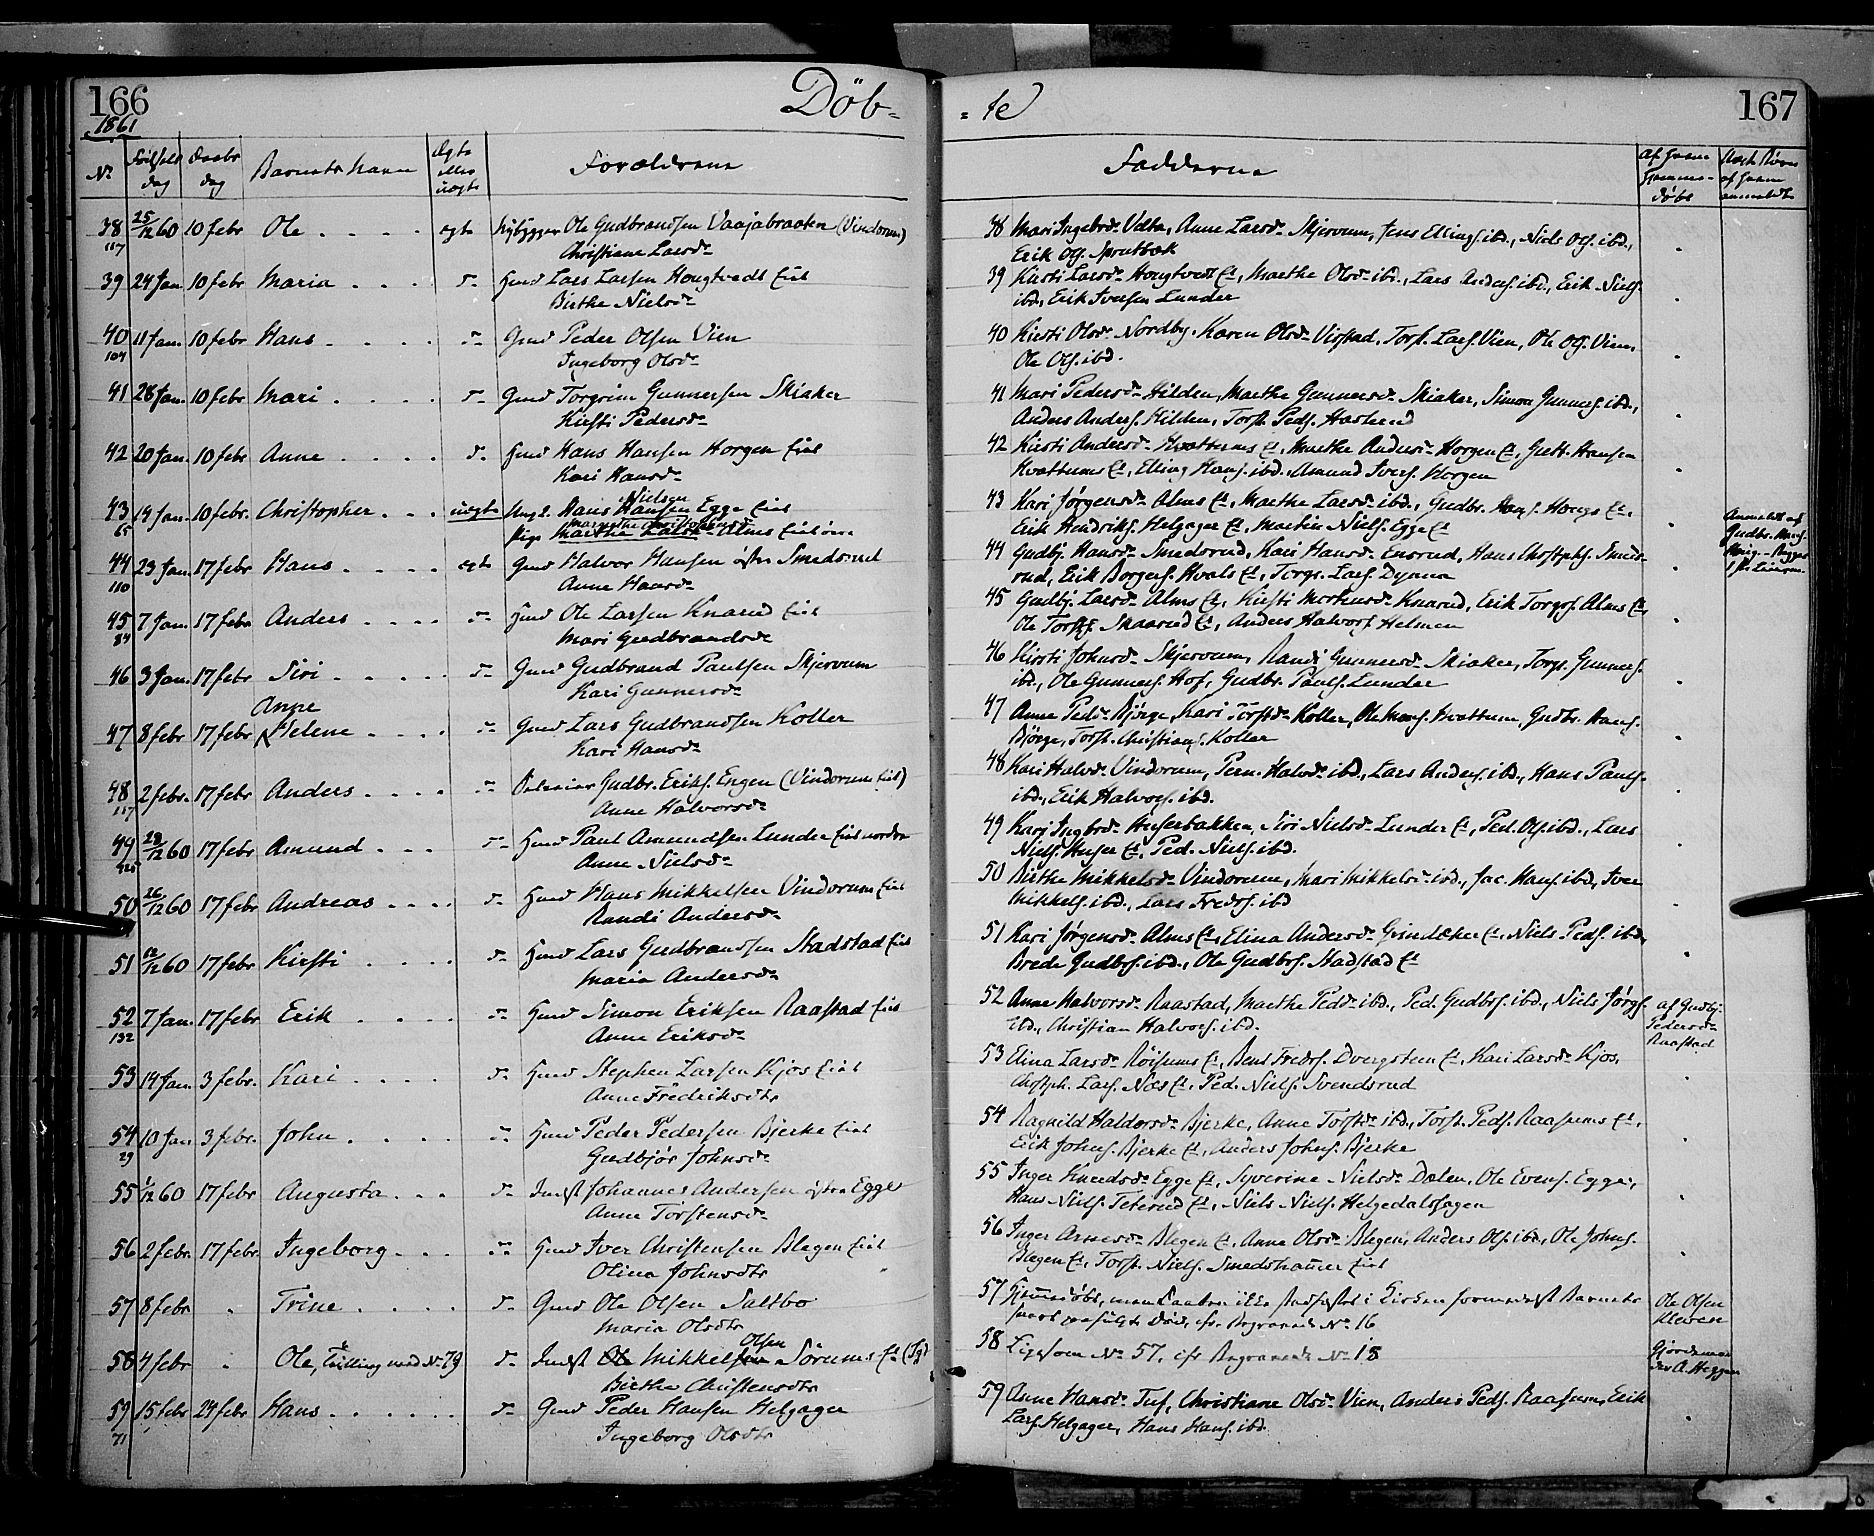 166
Döb-
1861
No Födsels dag Daabs dag Barnets Navn Ægte eller uægte Forældrene
38 25/12 60 10 febr Ole . . . . ægte Nybygger Ole Gudbrandsen Vaajabraaten (Vindorum)
117 Christiane Larsdr
39 24 Jan 10 febr Maria . . . . Lars Larsen Hougtvedt Eiet
Birthe Nielsdr
40 11 Jan. 10 febr Hans . . . . Gmd Peder Olsen Vien
104 Ingeborg Olsdr
41 28 Jan. 10 febr Mari . . . . Gmd Torgrim Gunnersen Skiaker
Kirsti Pedersdr
42 20 Jan. 10 febr Anne . . . . Hmd Hans Hansen Horgen Eiet
Kari Hansdr
43 14 Jan. 10 febr. Christopher . . . uægte Ungk. Hans Nielsen Egge Eiet
65 Pige Marthe Alms
44 23 Jan. 17 febr Hans . . . . ægte Gmd Halvor Hansen östre Smedsrud
110 Anne Haarsdr
45 7 Jan. 17 febr Anders . . . . Hmd Ole Larsen Knarud Eiet
84 Mari Gudbrandsdr
46 3 Jan. 17 febr Siri . . . . Gmd Gudbrand Paulsen Skjervum
Kari Gunnersdr
Anne
47 8 febr 17 febr Helene . . . . Gmd Lars Gudbrandsen Koller
Kari Hansdr
48 2 febr. 17 febr Anders . . . . Gudbr. Eriks. Engen (Vindorum Eiet)
117 Anne Halvorsdr
49 28/12 60 17 febr Amund . . . Hmd Paul Amundsen Lunder Eiet nordre
Anne Nielsdr
50 26/12 60 17 febr Andreas . . . . Hmd Hans Mikkelsen Vindorum Eiet
Randi Andersdr
51 /12 60 17 febr Kirsti . . . . Hmd Lars Gudbrandsen Stadstad Eiet
Maria Andersdr
52 7 Jan. 17 febr Erik . . . . Hmd Simon Eriksen Raastad Eiet
132 Anne Eriksdr
53 14 Jan. 3 febr. Kari . . . . Hmd Stephen Larsen Kjos Eiet
Anne Fredriksdtr
54 10 Jan. 3 febr. John . . . . Hmd Peder Pedersen Bjerke Eiet
29 Gudbjör Johnsdr
55 1/12 60 17 febr Augusta . . . Indst Johannes Andersen östre Egge
Anne Torstensdr
56 2 febr. 17 febr. Ingeborg . . . Hmd Iver Christensen Blegen Eiet
Olina Johnsdtr
57 8 febr " Trine . . . . Gmd Ole Olsen Saltbo
Maria Olsdtr
58 4 febr " Ole, Tvilling med No 79 Indst Mikkel Olsen Sörums Et
Birthe Christensdtr
59 15 febr 24 febr Hans . . . . . Gmd Peder Hansen Helgager
71 Ingeborg Olsdtr
-te
167
Fadderne af hvem hjemme-döbt
38 Mari Ingebrdr Velta, Anne Larsdr Skjervum, Jens Ellings. ibd., Niels Ols. ibd.,
Erik Ols. Sprutbæk
39 Kirsti Larsdr Hougtvedt Et, Marthe Olsdr ibd., Lars Anders. ibd., Erik Niels.
ibd., Erik Iversen Lunder
40 Kirsti Olsdr Nordby, Karen Olsdr Vigstad, Torst. Lars. Vien, Ole Ols. Vien,
Ole Ols. ibd.
41 Mari Pedersdr Hilden, Marthe Gunnersdr Skiaker, Simon Gunners. ibd.,
Anders Anders. Hilden, Torst. Peds.
42 Kirsti Andersdr Hvattums Et, Marthe Andersdr Horgen Et, Hansen
Hvattums Et, Elling Hans. ibd., Amund Ivers. Horgen
43 Kari Jørgensdr Alms Et, Marthe Larsdr ibd., Gudbr. Hans. Et,
Erik Hendriks. Helgager Et, Martin Niels. Egge Et
44 Gudbj. Hansdr Smedsrud, Kari Hansdr Ensrud, Hans Smeds-
rud, Erik Borgers. Hvals Et, Torgr. Lars. Dynna
45 Gudbj. Larsdr Alms Et, Kirsti Mortensdr Knarud, Erik Torgrs. Alms Et,
Ole Skaarud Et, Anders Halvors. Helmen
46 Kirsti Johnsdr Skjervum, Randi Gunnersdr Skiaker, Torgr. Gunners.
ibd., Ole Gunners. Hof, Gudbr. Pauls. Lunder
47 Anne Pedr Bjørge, Kari Torstdr Koller, Ole Hans. Hvattum, Gudbr. Hans.
Björge, Torst. Christians. Koller
48 Kari Halvdr Vindorum, Pern. Halvdr ibd., Lars Anders. ibd., Hans Pauls.
ibd., Erik Halvors. ibd.
49 Kari Ingbrdr Huserbakken, Siri Nielsdr Lunder Et, Ped. Ols. ibd., Lars
Niels. Huser Et, Ped. Niels. ibd.
50 Birthe Mikkelsdr Vindorum, Mari Mikkelsdr ibd., Jac. Hans. ibd., Iver
Mikkels. ibd., Lars Freds. ibd
51 Kari Jørgensdr Alms Et, Elina Andersdr Grindaker Et, Niels Peds. ibd.,
Brede Gudbrs. ibd., Ole Gudbrs. Stadstad Et
52 Anne Halvorsdr Raastad, Marthe Peddr ibd., Ped. Gudbrs. ibd., Niels Jørgs. af Gudbj.
ibd., Christian Halvors. ibd. Pedersdr Raastad
53 Elina Larsdr Röisums Et, Freds. Dvergsteen Et, Kari Larsdr Kjos,
Lars. Næs Et, Ped. Niels. Svendsrud
54 Ragnild Haldorsdr Bjerke, Anne Torstdr ibd., Torst. Peds. Raassums Et,
Erik Johns. Bjerke Et, Anders Johns. Bjerke
55 Inger Knudsdr Egge Et, Syverine Nielsdr Dælen, Ole Evens. Egge,
Hans Niels. Teterud Et, Niels Niels. Helgedalshagen
56 Inger Arnesdr Blegen Et, Anne Olsdr Blegen, Anders Ols. ibd., Ole Johns.
Blegen Et, Torst. Niels. Smedshammer Eiet
57 Hjemmedöbt, men Daaben ikke stadfæstet i Kirken formedelst Barnets Ole Olsen
snart paafulgte Död, cfr. Begravede No 16 Kleven
58 Ligesom No 57, cfr Begravede No 18 Gjordemoder A. Heggen
59 Anne Hansdr Tuf, Christiane Olsdr Vien, Anders Peds. Raassum, Erik
Lars. Helgager, Hans Hans. ibd.